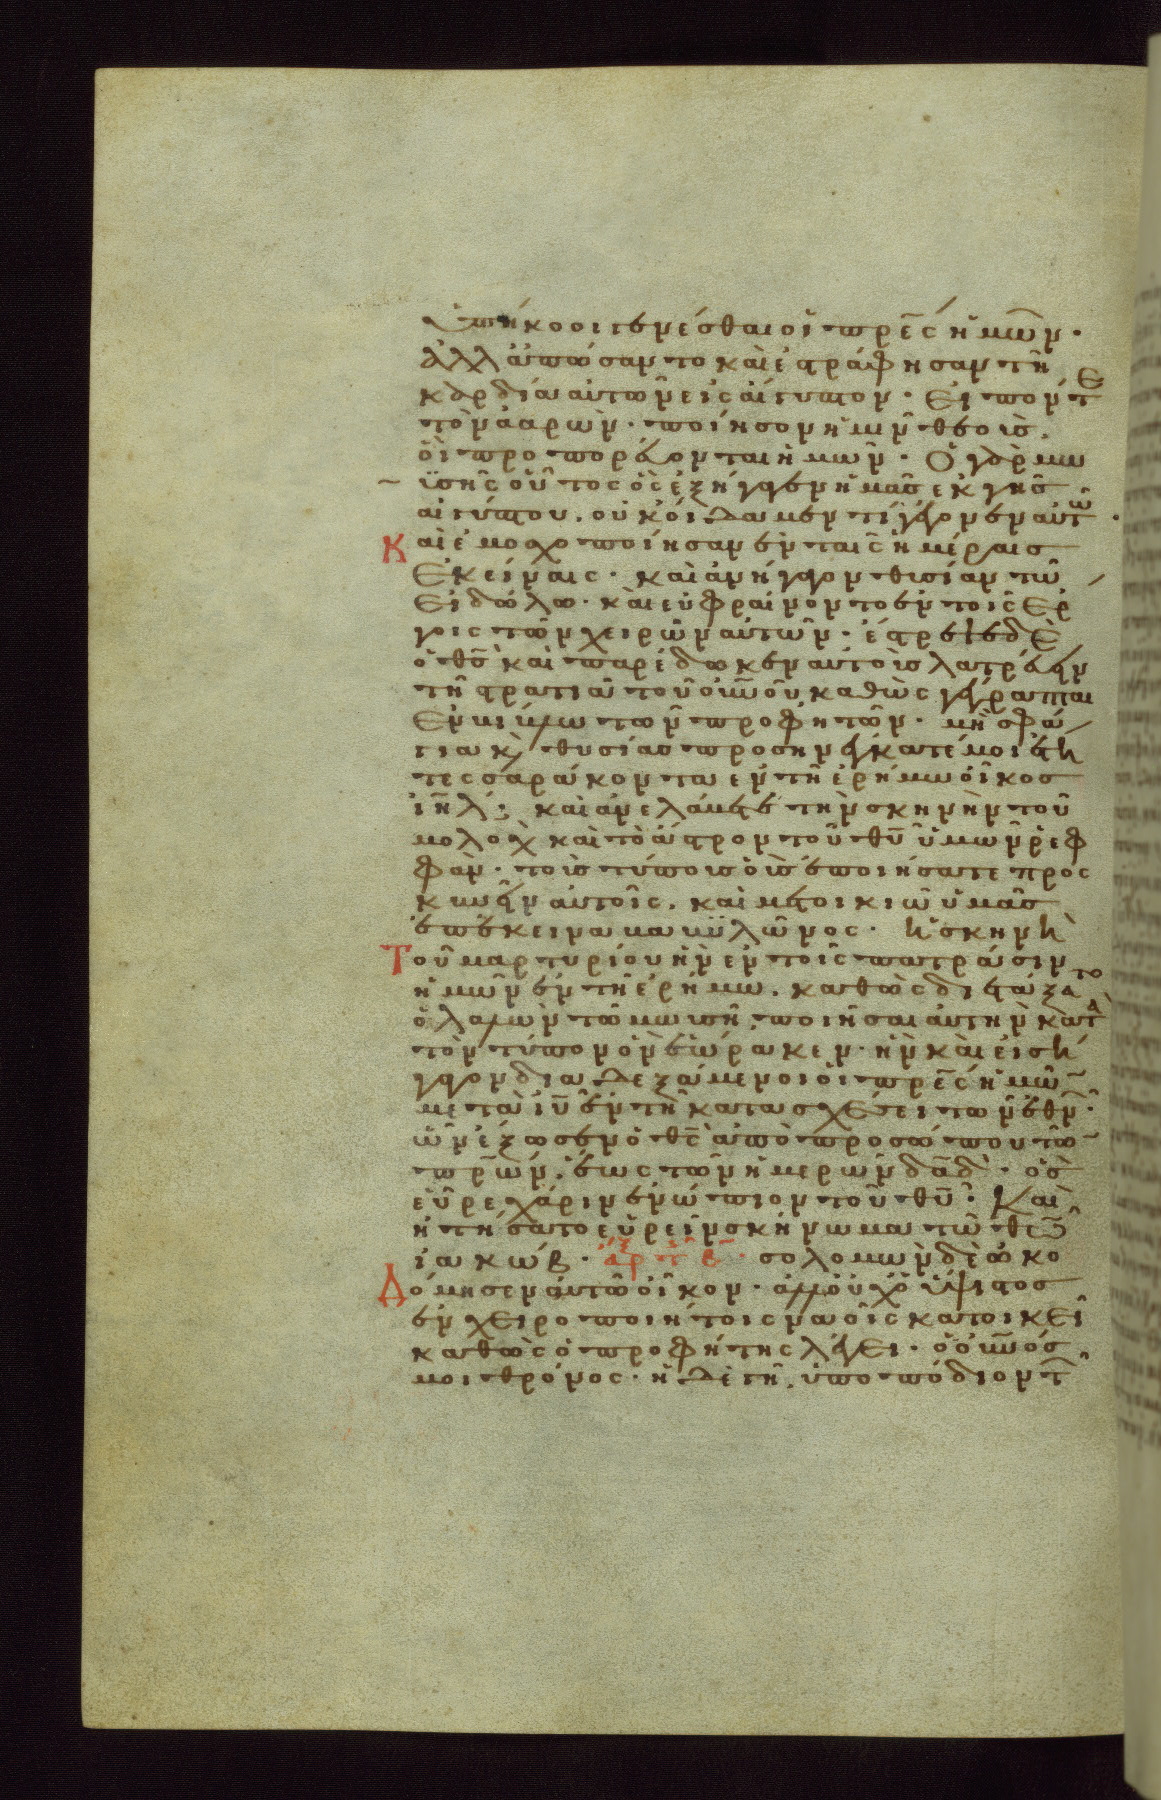 ὑπήκοοι γενέσθαι οἱ πρ̅ε̅ς ἡμῶν·
ἀλλ ἀπώσαντο καὶ ἐστράφησαν τῆ
καρδία αὐτῶν εἰς αἴγυπτον· Εἰπόντε
τὸν ἀαρών· ποίησον ἡμῖν θεοὺς,
οἳ προπορεύονται ἡμῶν· Ὁ γὰρ μω
ϊσῆς οὗτος ὃς ἐξήγαγεν ἡμᾶς ἐκ γῆς
αἰγύπτου, οὐκ οἴδαμεν τί γέγονεν αὐτῶ·
Καὶ ἐμοσχοποίησαν ἐν ταῖς ἡμέραις
Ἐκείναις· καὶ ἀνήγαγον θυσίαν τῶ
Εἰδώλω· καὶ εὐφραίνοντο ἐν τοῖς Ἐρ
γοις τῶν χειρῶν αὐτῶν· ἔστρεψε δὲ
ὁ θ̅ς̅ καὶ παρέδωκεν αὐτοὺς λατρεύειν
τῆ στρατιᾶ τοῦ ο̅υ̅ν̅ο̅υ̅ καθὼς γέγραπται
Ἐν βίβλω τῶν προφητῶν· μὴ σφά
για κ̀ θυσίας προσηνέγκατέ μοι ἔτη
τεσσαράκοντα ἐν τῆ ἐρήμω οἶκος
ι̅η̅λ̅; καὶ ἀνελάβετε τὴν σκηνὴν τοῦ
μολὸχ καὶ τὸ ἄστρον τοῦ θ̅υ̅ ὑμῶν ῥεφ
φάν· τοὺς τύπους οὓς ἐποιήσατε προς
κυνεῖν αὐτοῖς, καὶ μετοικιῶ ὑμᾶς
ἐπέκεινα βαβυλῶνος· ἡ σκηνὴ
Τοῦ μαρτυρίου ἦν ἐν τοῖς πατράσιν
ἡμῶν ἐν τῆ ἐρήμω, καθὼς διετάξατο
ὁ λαλῶν τῶ μωυσῆ, ποιῆσαι αὐτὴν κατὰ
τὸν τύπον ὃν ἑώρακεν· ἣν καὶ εἰσή
γαγον διαδεξάμενοι οἱ πρ̅ε̅ς ἡμῶ
μετὰ ι̅υ̅ ἐν τῆ κατασχέσει τῶν ἐθν·
ὧν ἐξωσεν ὁ θ̅ς̅ ἀπὸ προσώπου τῶ
πρ̅ων, ἕως τῶν ἡμερῶν δ̅α̅δ̅· ὃς
εὗρε χάριν ἐνώπιον τοῦ θ̅υ̅· Καὶ
ἠτήσατο εὑρεῖν σκήνωμα τῶ θεῶ
ἰακώβ· ἀρ τ β σολομὼν δὲ ὠκο
Δόμησεν αὐτῶ οἶκον· ἀλλ οὐχ ὁ ὕψιστος
ἐν χειροποιήτοις ναοῖς κατοικεῖ
καθὼς ὁ προφήτης λέγει· ὁ ο̅υ̅ν̅ός
μοι θρόνος· ἡ δὲ γῆ, ὑποπόδιον τ